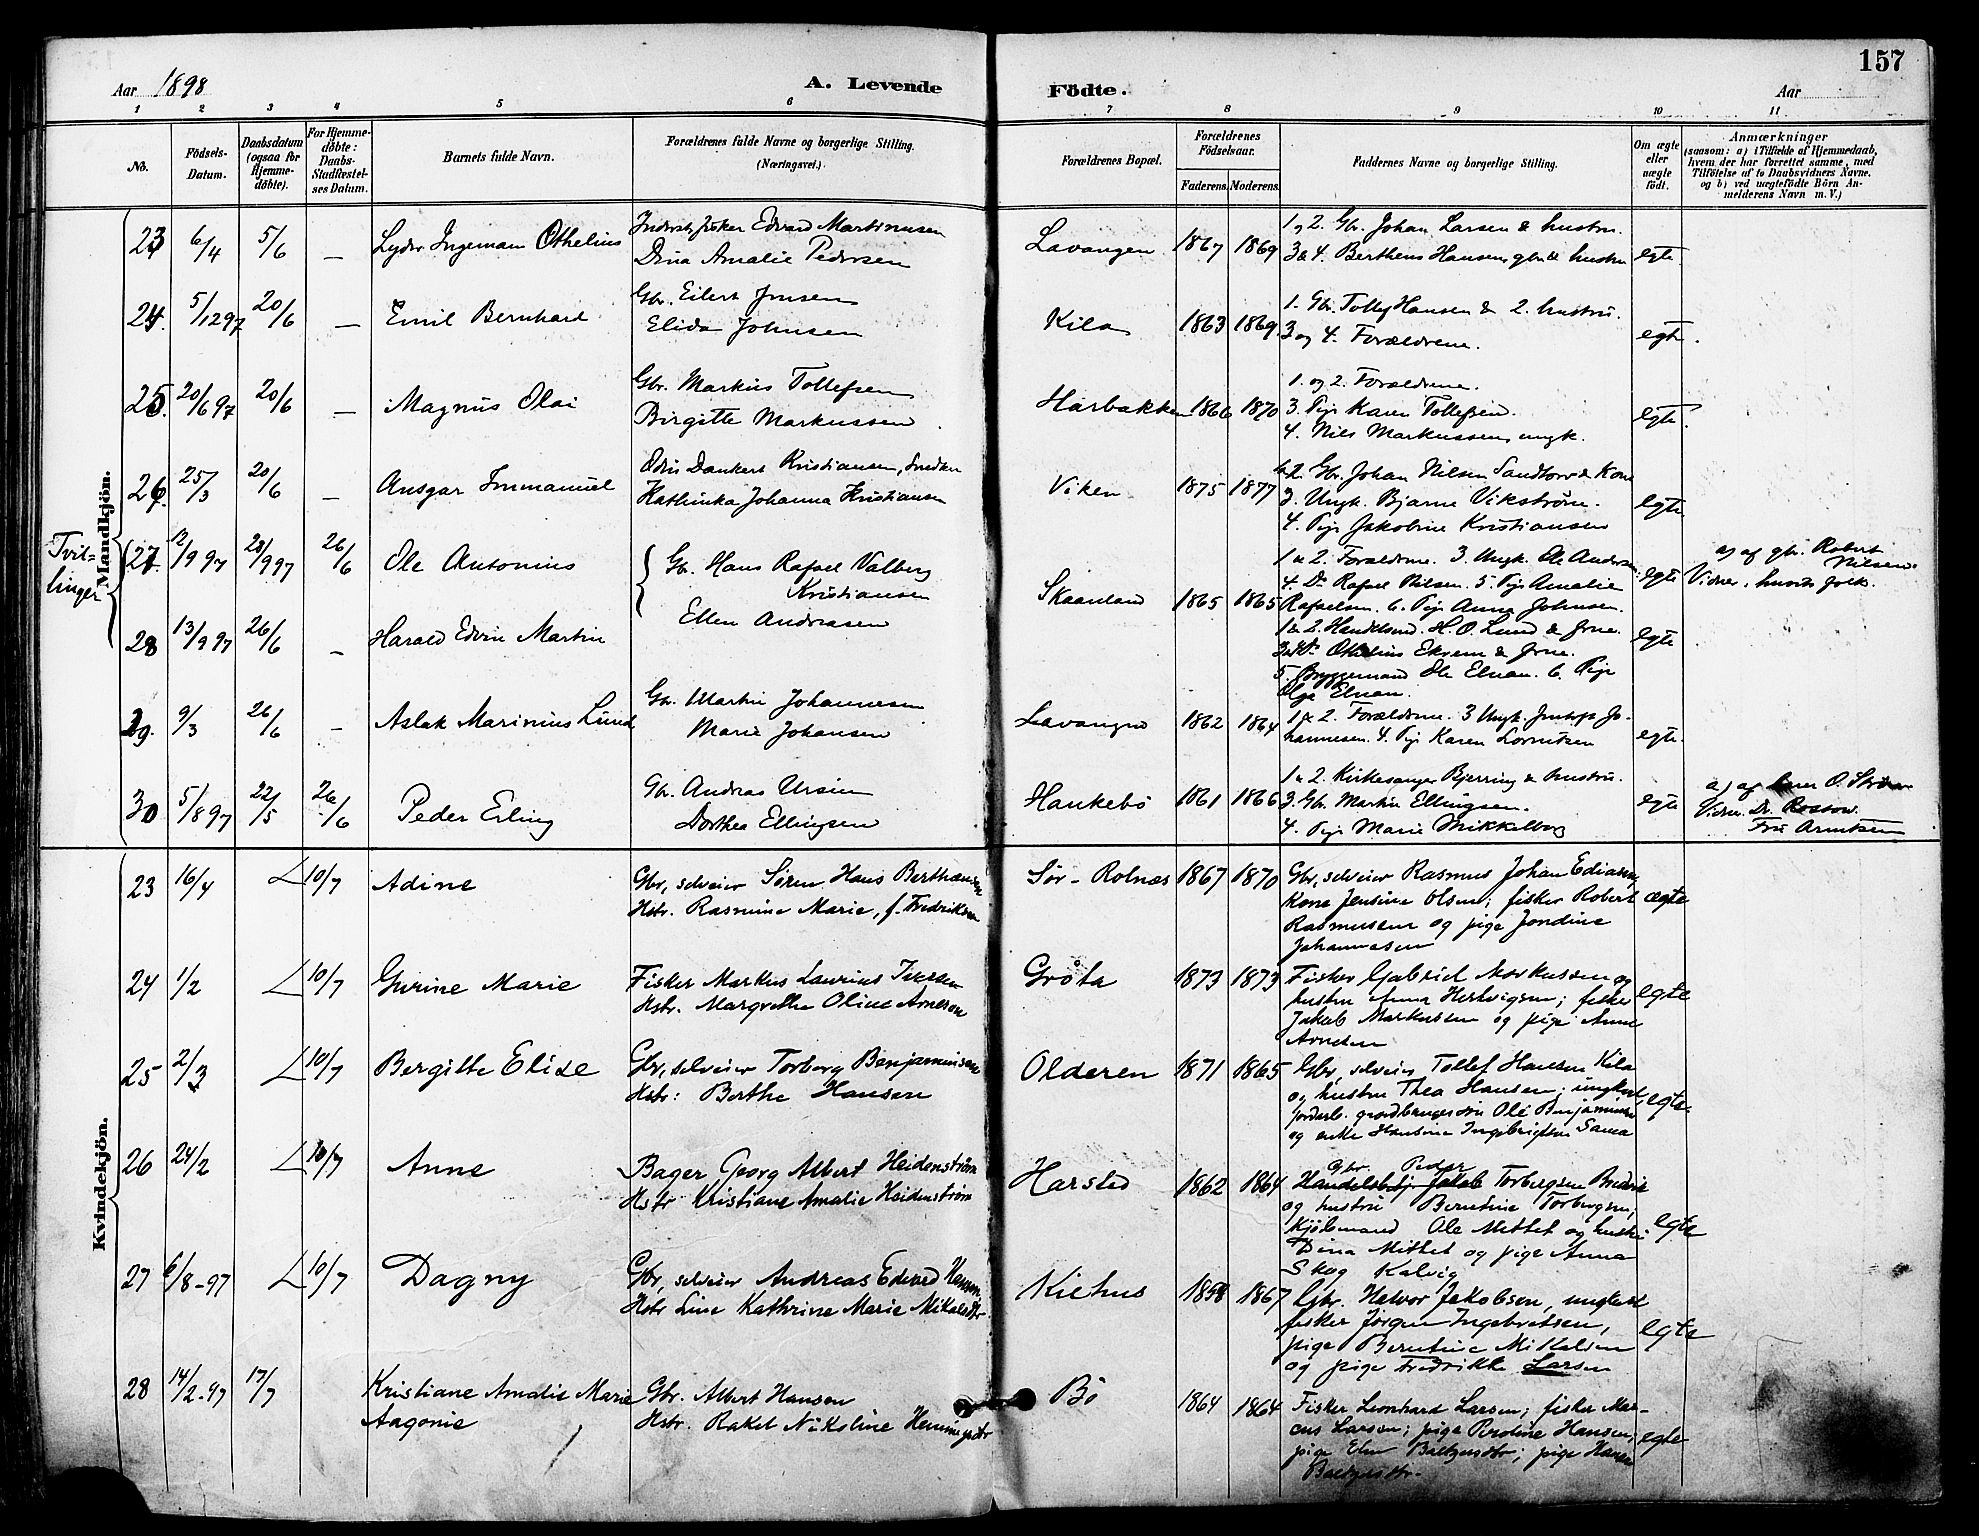 157
Aar 1898
A. Levende
Födte.
Aar
1 2 3 4 5 6 7 8 9 10 11
No.
Födsels-
Datum.
Daabsdatum
(ogsaa for
Hjemme-
döbte).
For Hjemme-
döbte:
Daabs-
Stadfæstel-
ses Datum.
Barnets fulde Navn.
Forældrenes fulde Navne og borgerlige Stilling.
(Næringsvei.)
Forældrenes Bopæl.
Forældrenes
Födselsaar.
Faderens. Moderens.
Faddernes Navne og borgerlige Stilling.
Om ægte
eller
uægte
födt.
Anmærkninger
(saasom: a) i Tilfælde af Hjemmedaab,
hvem der har forrettet samme, med
Tilföielse af to Daabsvidners Navne,
og b) ved uægtefödte Börn An-
melderens Navn m. V.)
Mandkjön.
23 6/4 5/6 — Lyder Ingeman Othelius
Inderst, fisker Edvard Martinusen
Dina Amalie Pedersen
Lavangen 1867 1869
1 og 2. Gbr. Johan Larsen & hustru.
3 & 4. Berthens Hansen, gbr. & hustru
egte
24. 5/12 97 20/6 — Emil Bernhard
Gbr. Eilert Jensen
Elida Johnsen
Kila 1863 1869.
1. Gbr. Tollef Hansen & 2. hustru.
3 og 4. Forældrene.
egte.
25. 20/6 97 20/6 — Magnus Olai
Gbr. Markus Tollefsen
Birgitte Markussen
Harbakken 1866 1870
1. og 2. Forældrene.
3. Pige Karen Tollefsen.
4. Nils Markussen, ungk.
egte.
26. 25/3 20/6 — Ansgar Immanuel
Odin Dankert Kristiansen, Snedker
Kathinka Johanna Kristiansen
Viken 1875 1877
1 & 2. Gbr. Johan Nilsen Sandtorv & Kone
3. Ungk. Bjarne Vikstrøm.
4. Pige Jakobine Kristiansen
egte
Tvil-
linger
27. 12/9 97 28/9 97 26/6 Ole Antonius
Gbr. Hans Rafael Valberg
Kristiansen
Ellen Andreasen
Skaanland 1865 1865
1 & 2. Forældrene. 3. Ungk. Ole Andersen.
4. Do Rafael Nilsen. 5. Pige Amalie
Rafaelsen. 6. Pige Anna Johnsen.
egte
a) af gbr. Robert
Nilsen.
Vidner, husets folk.
28 13/9 97 26/6 — Harald Edvin Martin
1 & 2. Handelsmd. H. O. Lund & frue.
3 & 4. Do Othelius Ekrem & frue.
5. Bryggemand Ole Elnan. 6. Pige
Olga Elnan.
egte
29. 9/3 26/6 — Aslak Marinius Lund
Gbr. Martin Johannesen
Marie Johansen
Lavangen 1862 1864
1 & 2. Forældrene. 3 Ungk. Jo-
hannesen. 4. Pige Karen Lorentzen
egte.
30 5/8 97 22/5 26/6 Peder Erling
Gbr. Andreas Ursin
Dorthea Ellingsen
Haukebø 1861 1866
1 & 2. Kirkesanger Bjerring & hustru.
3. Gbr. Martin Ellingsen.
4. Pige Marie Mikkelborg
egte
a) af O.
Vidner. Dr. Rossow.
Fru Arntzen
Kvindekjön.
23 16/4 10/7 Adine
Gbr, selveier Søren Hans Berthausen
Hstr. Rasmine Marie, f. Fredriksen
Sør-Rolnæs 1867 1870
Gbr, selveier Rasmus Johan Ediassen,
Kone Jensine Olsen; fisker Robert
Rasmussen og pige Jondine
Johannesen
ægte
24 1/2 10/7 Gurine Marie
Fisker Markus Laurius Iversen
Hstr. Margrethe Oline Arnesen
Grøta 1873 1873
Fisker Gabriel Markussen og
hustru Anna Hertvigsen; fisker
Jakob Markussen og pige Anne
Arnesen
egte
25 2/3 10/7 Bergitte Elise
Gbr, selveier Torberg Benjaminsen
Hstr: Berthe Hansen
Olderen 1871 1865
Gbr, selveier Tollef Hansen Kila
og hustru Thea Hansen; ungkarl,
gaardbrugersøn Ole Benjaminsen
og enke Hansine Ingebrigtsen Sama
egte
26 24/2 10/7 Anne
Bager Georg Albert Heidenstrøm
Hstr Kristiane Amalie Heidenstrøm
Harstad 1862 1864
Gbr. Peder
Handelsbetj. Jakob Torbergsen Bredvik
og hustru Berntine Torbergsen,
Kjøbmand Ole Mittet og hustru
Dina Mittet og pige Anna
Skog Kalvig
egte
27 6/8-97 10/7 Dagny
Gbr, selveier Andreas Edvard Hansen,
Hstr Line Kathrine Marie Mikalsdtr
Kichus 1858 1867
Gbr. Halvor Jakobsen, ungkarl
fisker Jørgen Ingebretsen,
pige Berntine Mikalsen
og pige Fredrikke Larsen
egte
28 14/2-97 17/7 Kristiane Amalie Marie
Aagonie
Gbr. Albert Hansen
Hstr. Rakel Nikoline Henningsdtr
Bø 1864 1864
Fisker Leonhard Larsen; fisker Mar-
cus Larsen; pige Perdine Hansen,
pige Elen Baltzersdtr; pige Hanna
Baltzersdtr.
egte